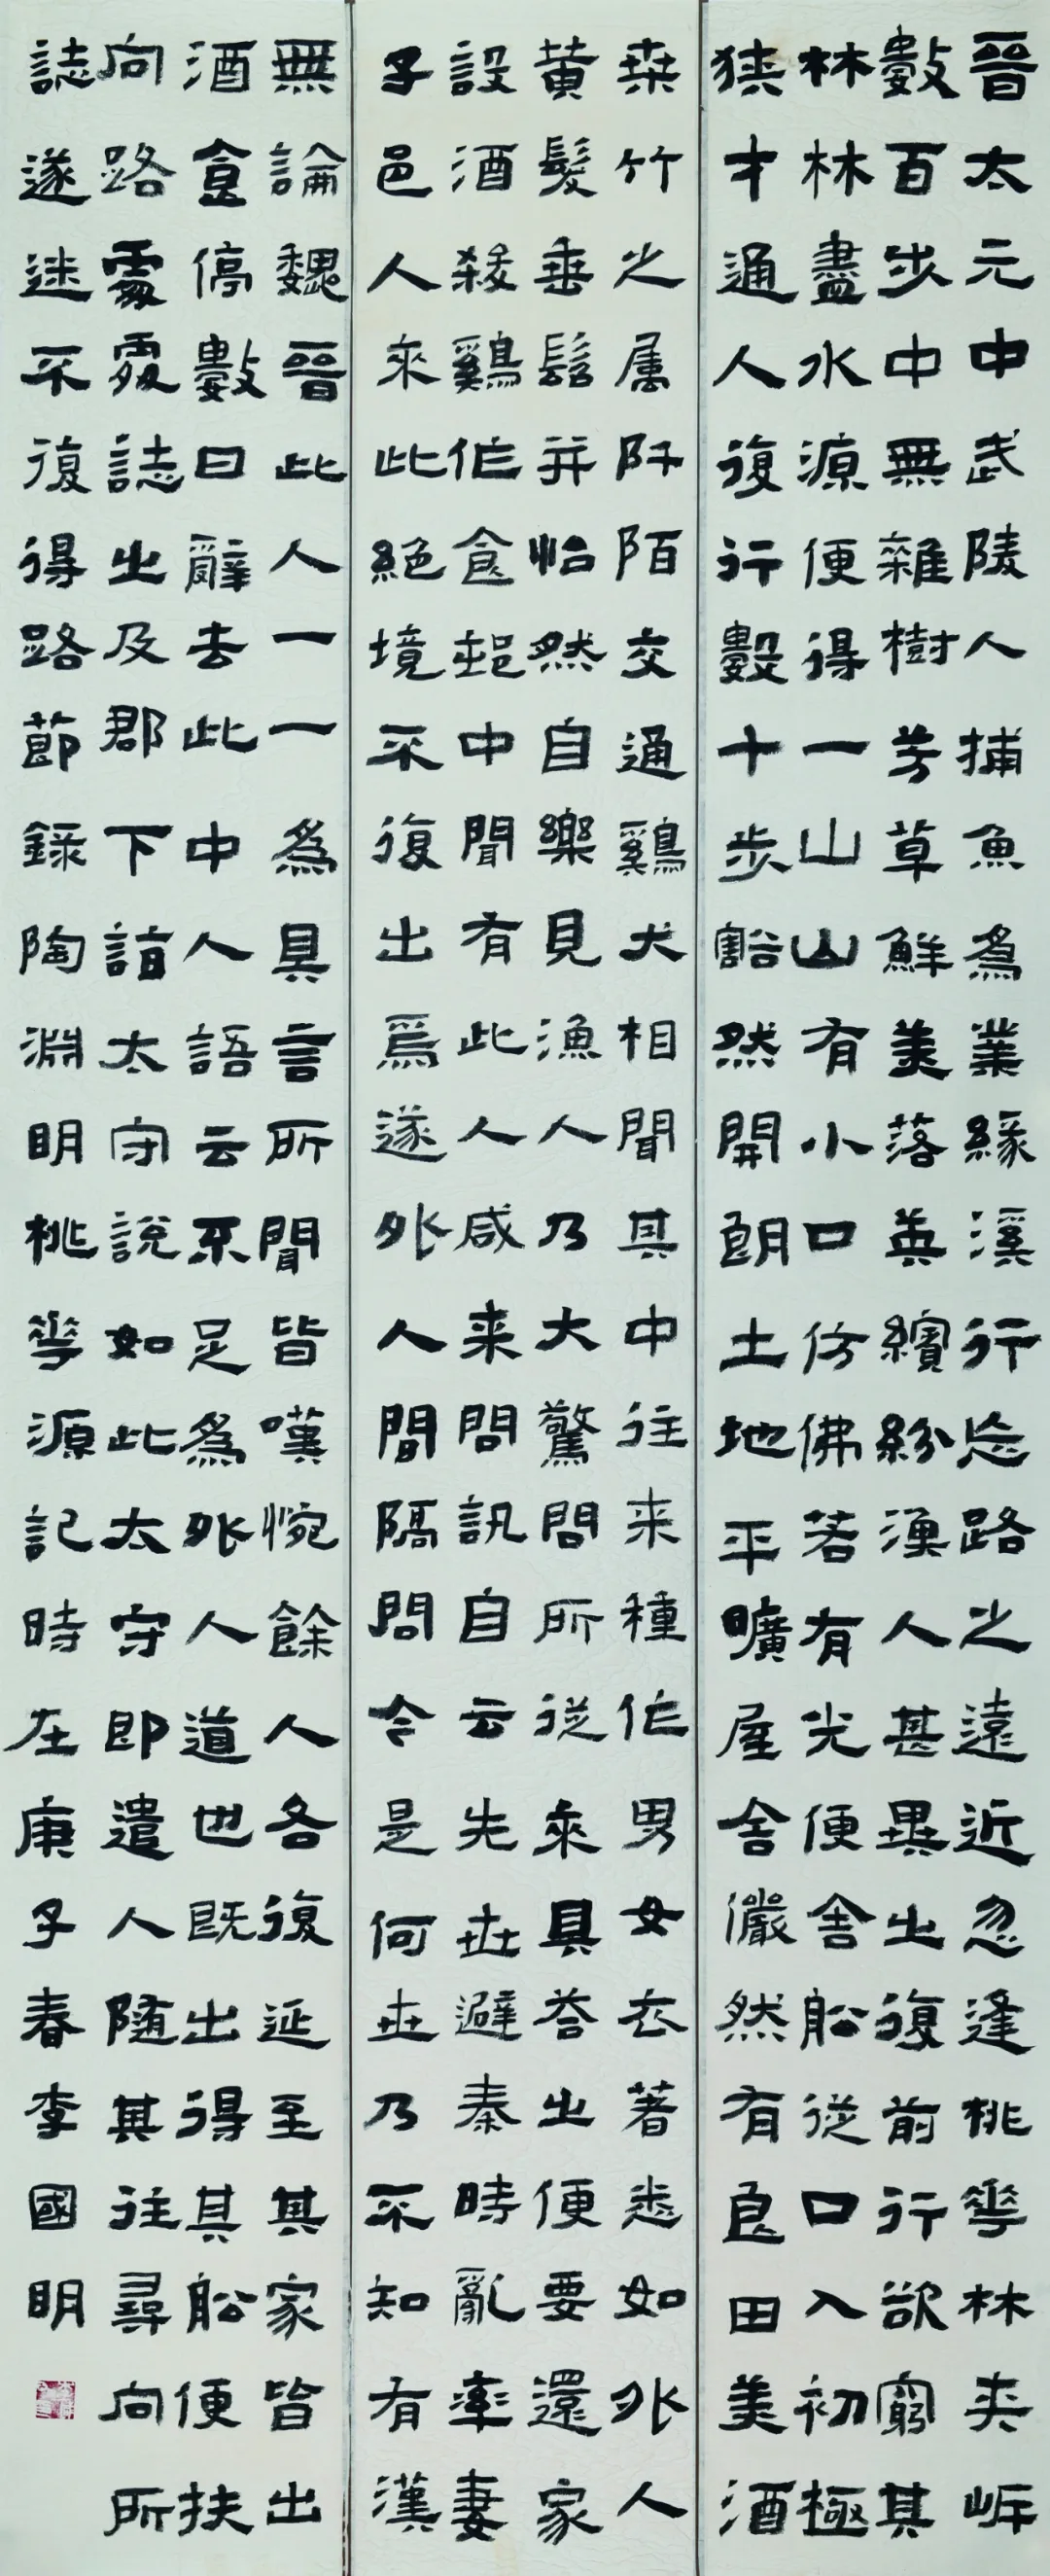 晉太元中武陵人捕魚為業緣溪行忘路之遠近忽逢桃華林夾岸
數百步中無雜樹芳草鮮美落英繽紛漁人甚異之復前行欲窮其
林林盡水源便得一山山有小口仿佛若有光便舍船從口入初極
狭才通人復行數十步豁然開朗土地平曠屋舍儼然有良田美酒
桒竹之属阡陌交通鷄犬相聞其中往来種作男女衣著悉如外人
黄髮垂髫并怡然自樂見漁人乃大驚問所從來具荅之便要還家
設酒殺鷄作食邨中聞有此人咸来問訊自云先世避秦時亂率妻
子邑人來此絕境不復出焉遂外人間隔問今是何世乃不知有漢
無論魏晉此人一一為具言所聞皆嘆惋餘人各復延至其家皆出
酒食停數日辭去此中人語云不足為外人道也既出得其船便扶
向路處處誌之及郡下詣太守說如此太守即遣人随其往尋向所
誌遂迷不復得路節錄陶淵明桃華源記時在庚子春李國明